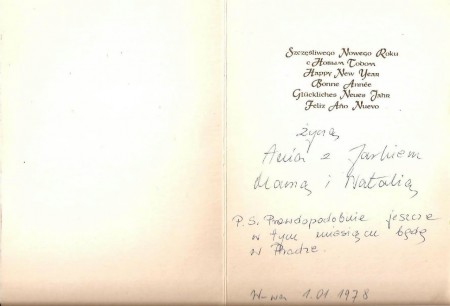 Szczęśliwego Nowego Roku
с Новым Годом
Happy New Year
Bonne Année
Glückliches Neues Jahr
Feliz Año Nuevo
życzą
Ania z Jarkiem
Mamą i Natalią
P.S. Prawdopodobnie jeszcze
w tym miesiącu będę
w Pradze.
W-wa 1.01.1978